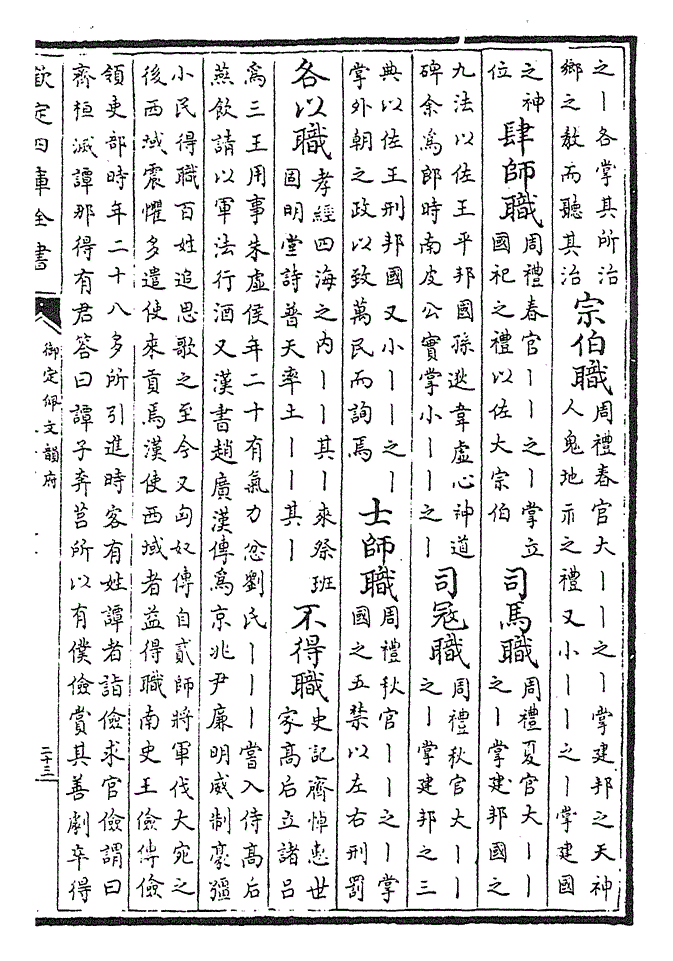 之丨各掌其所治
鄉之教而聽其治
宗伯職
周禮春官大丨丨之丨掌建邦之天神
人鬼地示之禮又小丨丨之丨掌建國
之神
位
肆師職
周禮春官丨丨之丨掌立
國祀之禮以佐大宗伯
司馬職
周禮夏官大丨丨
之丨掌建邦國之
九法以佐王平邦國孫逖韋虛心神道
碑余為郎時南皮公實掌小丨丨之丨
司冦職
周禮秋官大丨丨
之丨掌建邦之三
典以佐王刑邦國又小丨丨之丨
掌外朝之政以致萬民而詢焉
士師職
周禮秋官丨丨之丨掌
國之五禁以左右刑罰
各以職
孝經四海之内丨丨其丨來祭班
固明堂詩普天率土丨丨其丨
不得職
史記齊悼惠世
家高后立諸呂
為三王用事朱虛侯年二十有氣力忿劉氏丨丨丨嘗入侍高后
燕飲請以軍法行酒又漢書趙廣漢傳為京兆尹廉明威制豪彊
小民得職百姓追思歌之至今又匈奴傳自貳師將軍伐大宛之
後西域震懼多遣使來貢焉漢使西域者益得職南史王儉傳儉
領吏部時年二十八多所引進時客有姓譚者詣儉求官儉謂曰
齊桓滅譚那得有君答曰譚子奔莒所以有僕儉賞其善劇卒得
欽定四庫全書
御定佩文韻府
二十三